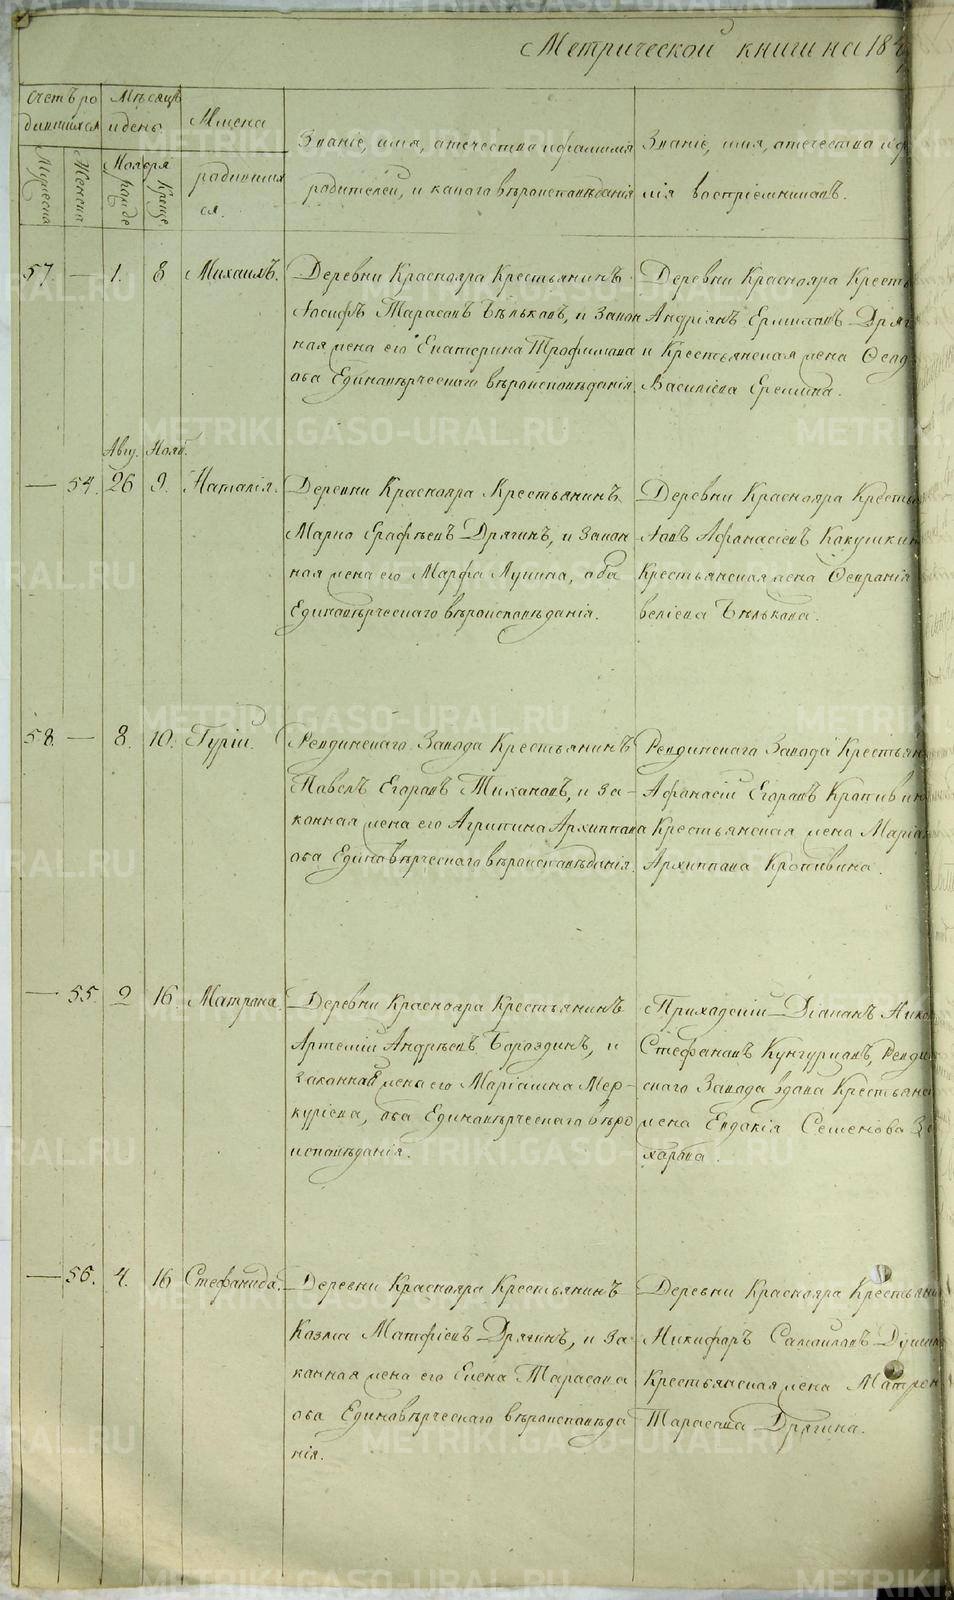 Метрической книги на 184
Счетъ ро
дившихся
Мѣсяцъ
и день.
Имена
родивших
ся.
Званіе, имя, отечество и фамилія
родителей, и какого вѣроисповѣданія
Званіе, имя, отечество и фа
лія воспріемниковъ.
Мужеска
Женска
Ноября
рожде
креще
57. — 1. 8 Михаилъ.
Деревни Краснояра Крестьянинъ
Іосифъ Тарасовъ Бѣльковъ, и закон
ная жена его Екатерина Трофимова
оба Единовѣрческаго вѣроисповѣданія.
Деревни Краснояра Кресть
Андріянъ Ермиловъ Дряг
и Крестьянская жена Ѳеод
Василіева Еремина.
Авгу. Нояб.
— 54. 26 9. Наталія.
Деревни Краснояра Крестьянинъ
Марко Ерафѣевъ Дрягинъ, и закон
ная жена его Марфа Лукина, оба
Единовѣрческаго вѣроисповѣданія.
Деревни Краснояра Кресть
Іовъ Афанасіевъ Кокушкин
Крестьянская жена Ѳевранія
веліева Бѣлькова.
58. — 8. 10. Гурій.
Ревдинскаго Завода Крестьянинъ
Павелъ Егоровъ Тихановъ, и за-
конная жена его Агрипина Архиппова
оба Единовѣрческаго вѣроисповѣданія.
Ревдинскаго Завода Крестьян
Афанасій Егоровъ Кропивин
Крестьянская жена Марія
Архиппова Кропивина.
— 55. 2 16. Матрона.
Деревни Краснояра Крестьянинъ
Артемій Андрѣевъ Бороздинъ, и
законная жена его Маріамна Мер-
куріева, оба Единовѣрческаго вѣро
исповѣданія.
Приходскій Діаконъ Нико
Стефановъ Кунгурцовъ, Ревди
нскаго Завода вдова Крестьянс
жена Евдокія Семенова За
харова.
— 56. 4. 16 Стефанида.
Деревни Краснояра Крестьянинъ
Козма Матфіевъ Дрягинъ, и за
конная жена его Елена Тарасова
оба Единовѣрческаго вѣроисповѣда
нія.
Деревни Краснояра Крестьяни
Никифоръ Самойловъ
Крестьянская жена Матрон
Тарасова Дрягина.
METRIKI.GASO-URAL.RU